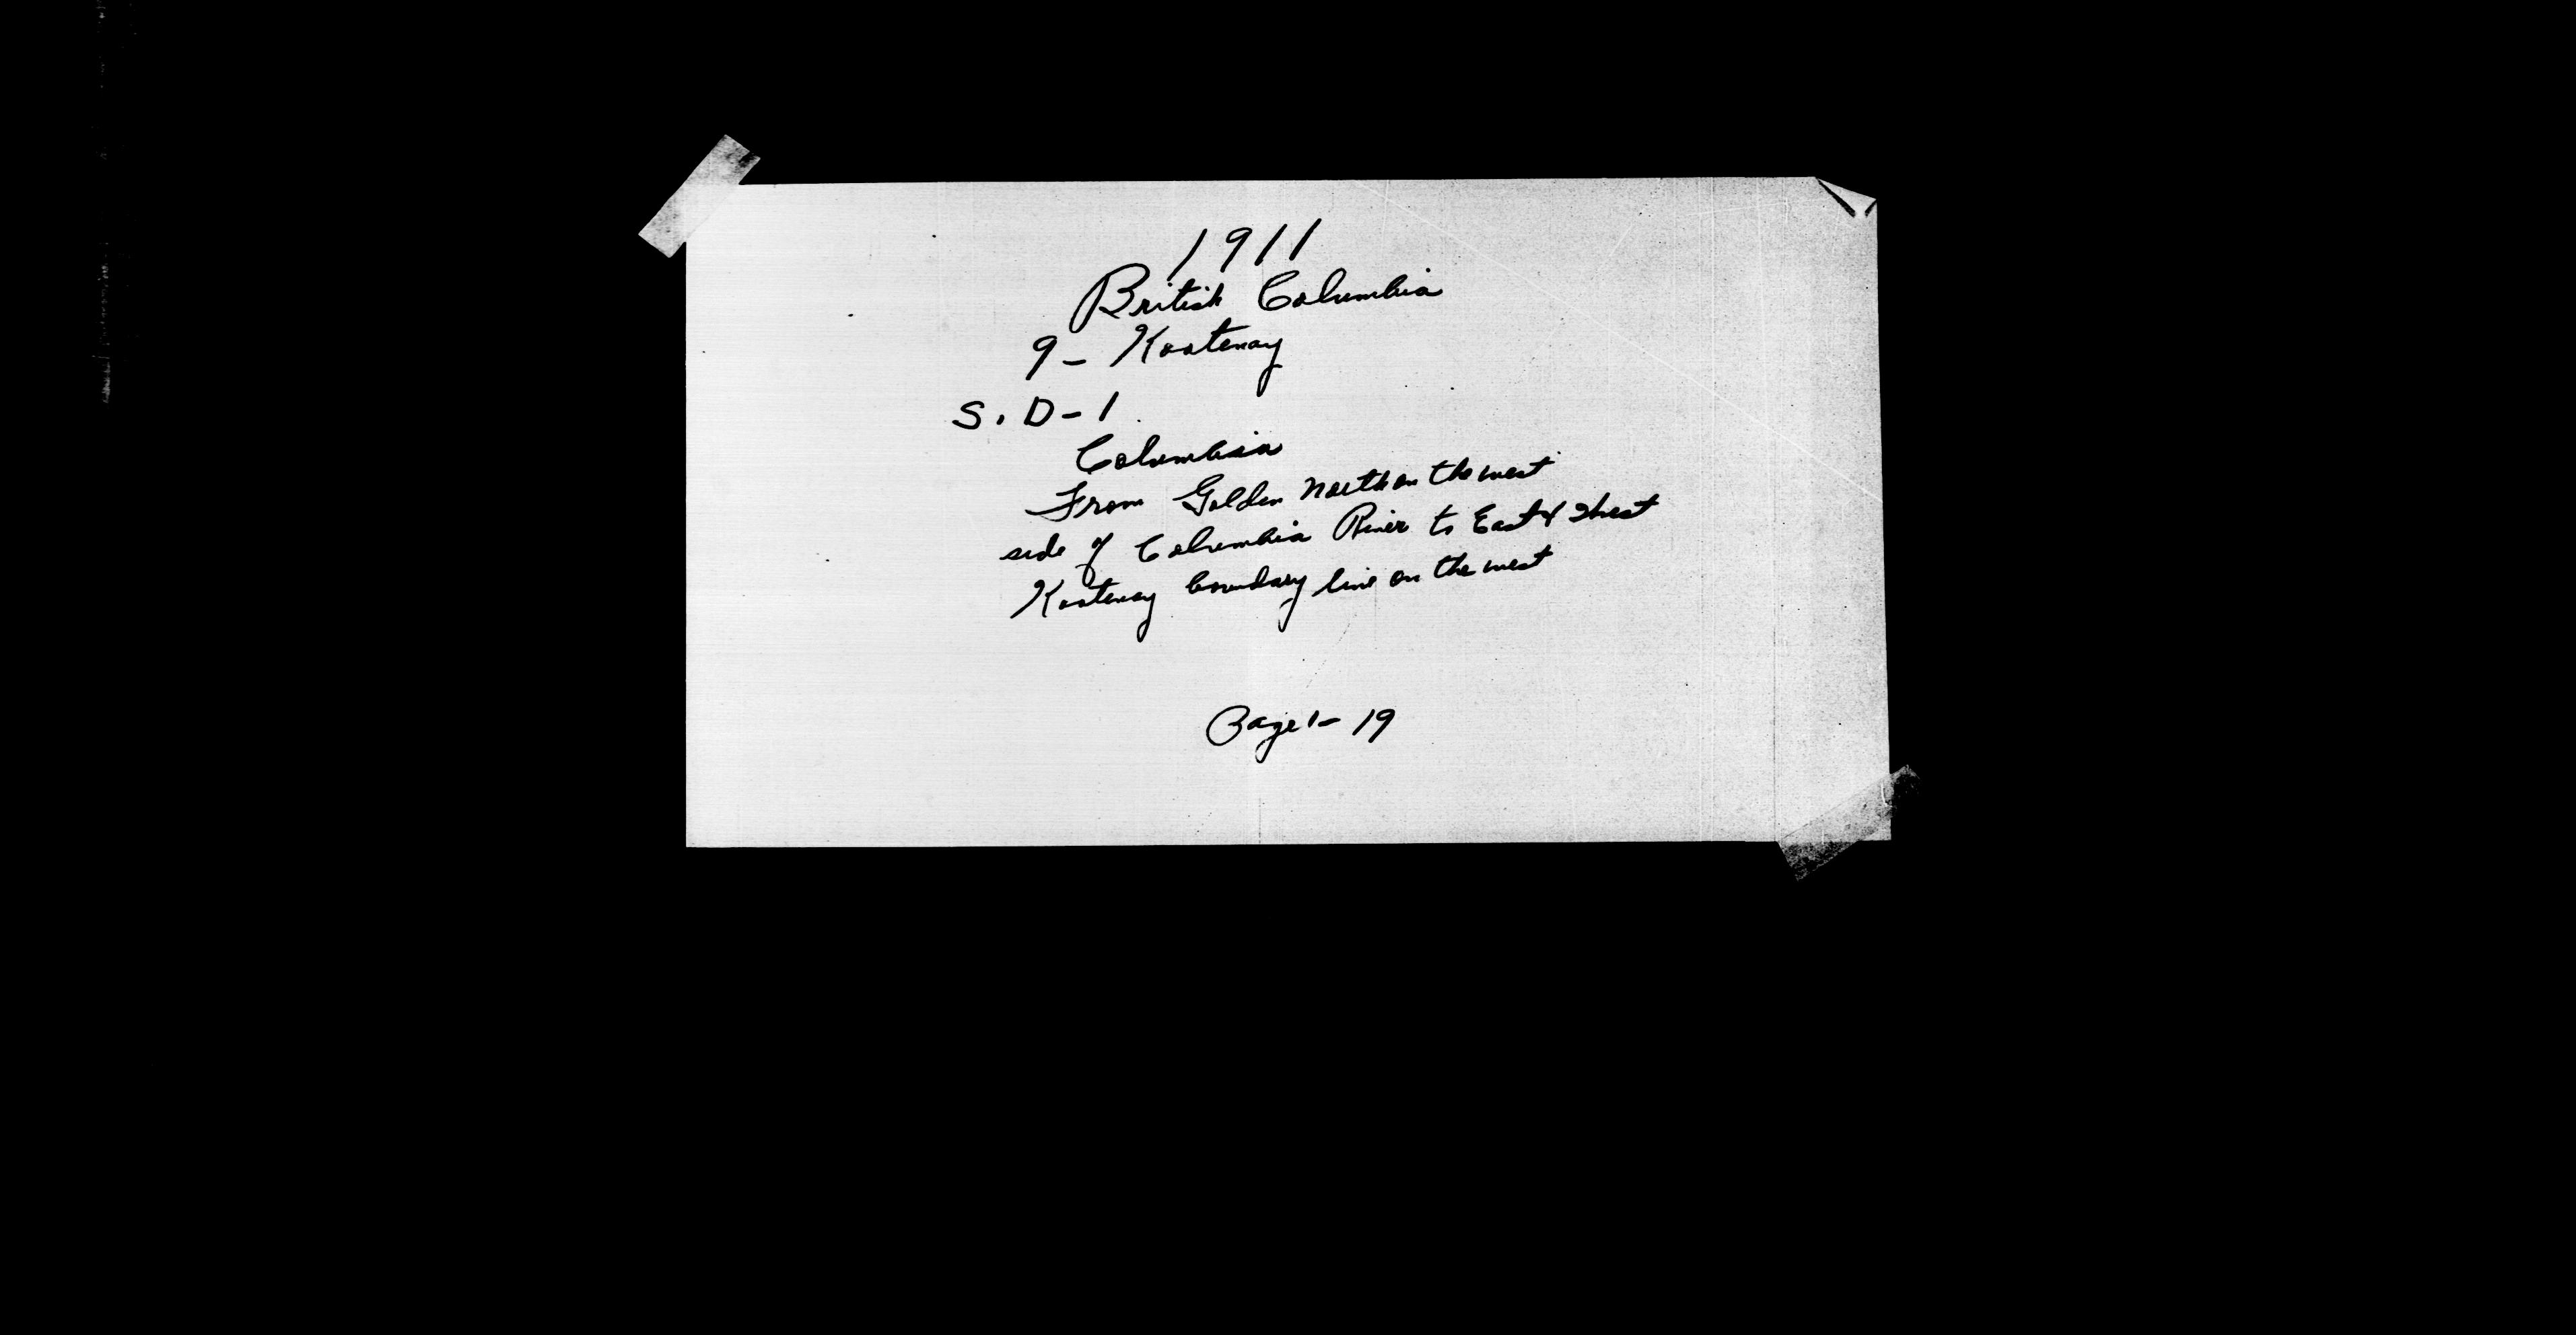 1911
British Columbia
9- Kootenay
S. D-1
Columbia
From Golden North on the west
side of Columbia River to East & West
Kootenay boundary line on the west
Page 1- 19